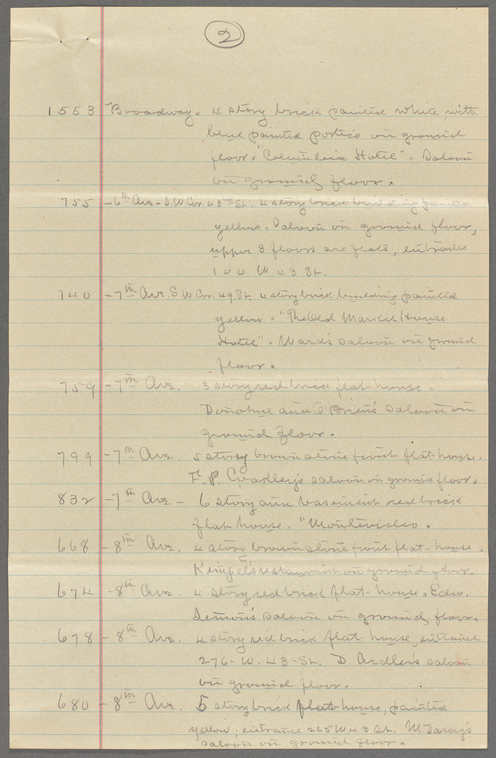 2
1553 Broadway. 4 story brick painted white with
blue painted portico on ground
floor. "Columbia Hotel". Saloon
on ground floor.
755 - 6th Ave - S.W Cor. 43rd St. 4 story brick building painted
yellow. Saloon on ground floor,
upper 3 floors are flats, entrance
100 W. 43 St.
740 - 7th Ave S W Cor. 49 St. 4 story brick building painted
yellow. "The Old Market House
Hotel". Ward's saloon on ground
floor.
759 - 7th Ave. 3 story red brick flat house.
Donohue and O'Brien's saloon on
ground floor.
799 - 7th Ave. 5 story brown stone front flat-house.
F. P. saloon on ground floor.
832 - 7th Ave - 6 story and basement red brick
flat house. "Montevideo.
668 - 8th Ave. 4 story brown stone front flat-house.
restaurant on ground floor.
674 - 8th Ave. 4 story red brick flat-house. Edw.
saloon on ground floor.
678 - 8th Ave. 4 story red brick flat-house, entrance
276 - W. 43 - St. D. saloon
on ground floor.
680 - 8th Ave. 5 story brick flat house, painted
yellow; entrance W 4 St. saloon on ground floor.